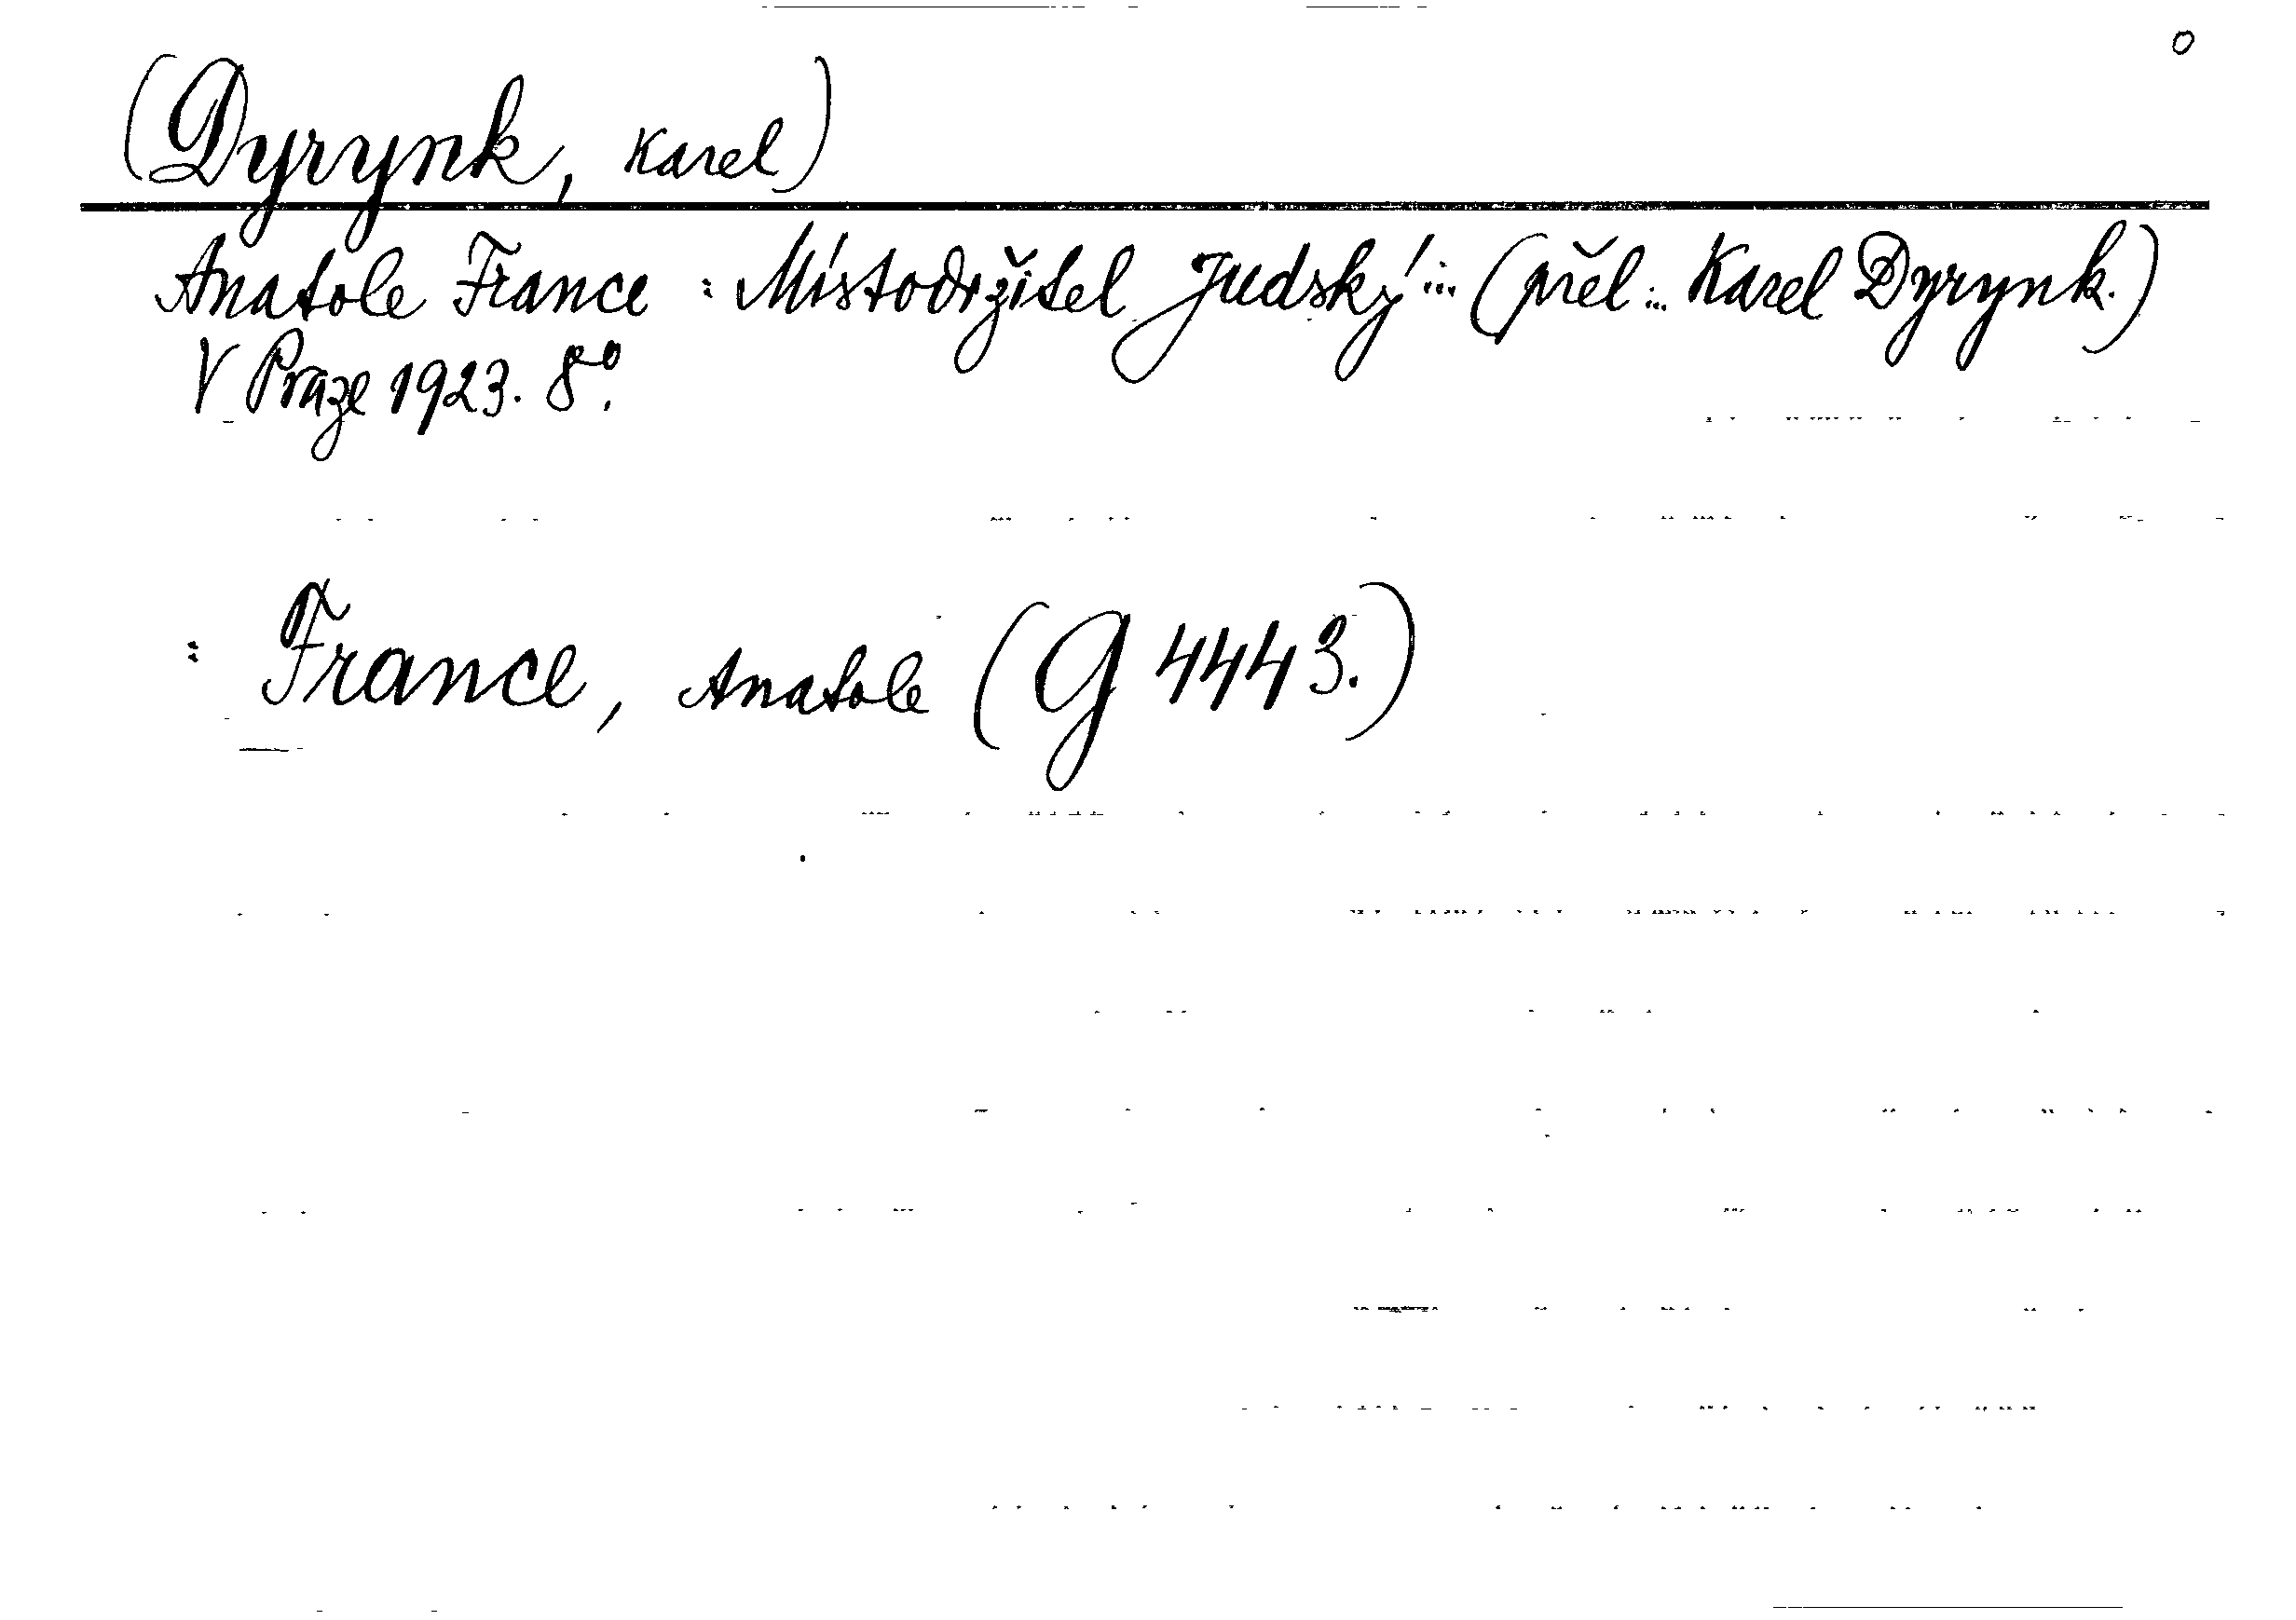 o
(Dyrynk, Karel)
Anatole France : Místodržitel Judský ... (přel ... Karel Dyrynk.)
V Praze 1923. 8º.
: France, Anatole (G 4443.)